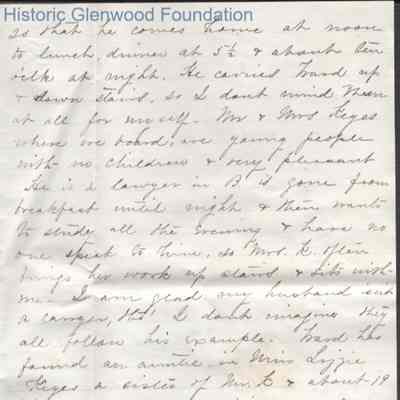 Historic Glenwood Foundation
so that he comes home at noon
to lunch, dinner at 5½ & about ten
oclk at night. He carries Ward up
& down stairs, so I dont mind them
at all for myself. Mr & Mrs Keyes
where we board, are young people
with no children & very pleasant
He is a lawyer in B is gone from
breakfast until night & then wants
to study all the evening & have no
one speak to him, so Mrs. K. often
brings her work up stairs & sits with
me. I am glad my husband isnt
a lawyer, tho' I dont imagine they
all follow his example. Ward has
found an auntie in Miss Lizzie
Keyes a sister of Mr. K & about 19